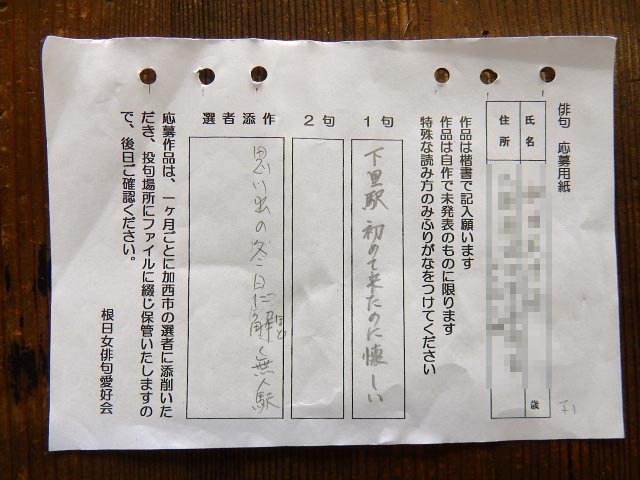 俳句 応募用紙
氏名
歳
住所
作品は楷書で記入願います
作品は自作で未発表のものに限ります
特殊な読み方のみふりがなをつけてください
1句
下里駅 初めて来たのに懐しい
2句
選者添作
思い出の冬日に解く無人駅
ほど
応募作品は、一ヶ月ごとに加西市の選者に添削いた
だき、投句場所にファイルに綴じ保管いたしますの
で、後日ご確認ください。
根日女俳句愛好会